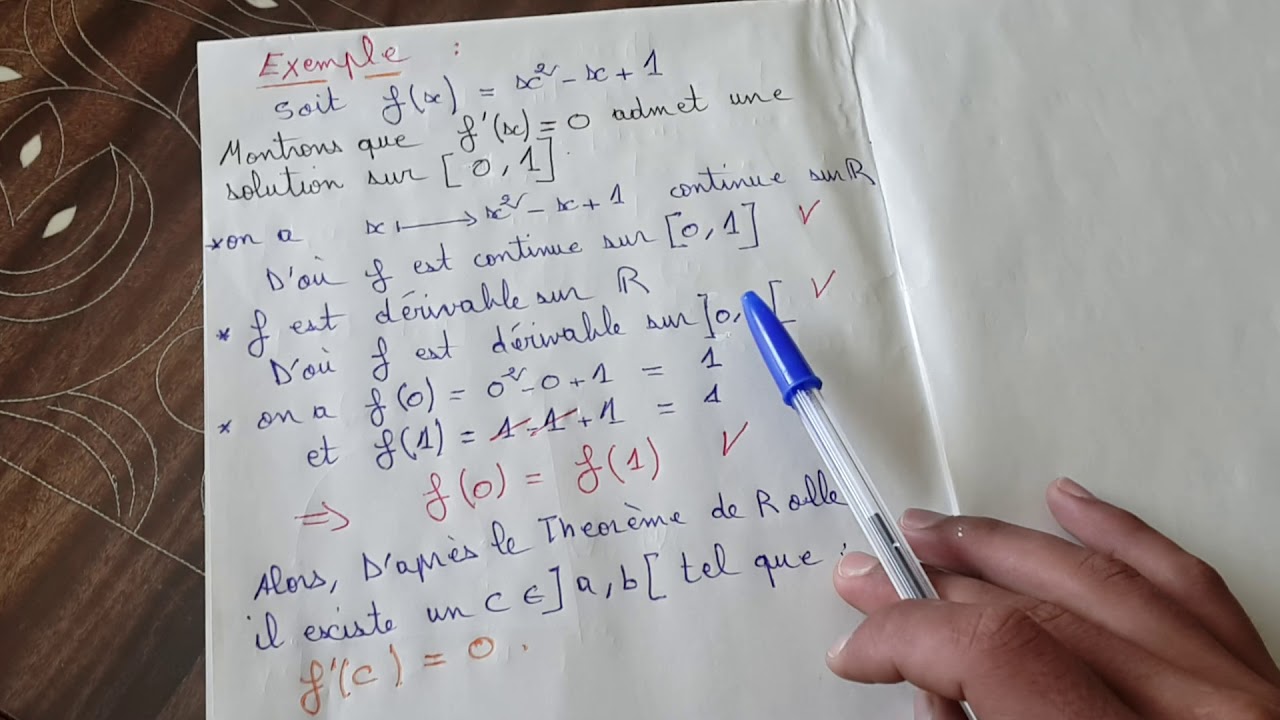 Exemple :
Soit f(x) = x² - x + 1
Montrons que f'(x) = 0 admet une
solution sur [0, 1].
* on a x ⟼ x² - x + 1 continue sur ℝ
D'où f est continue sur [0, 1] ✓
* f est dérivable sur ℝ
D'où f est dérivable sur ]0, [ ✓
* on a f(0) = 0² - 0 + 1 = 1
et f(1) = 1 - 1 + 1 = 1
⇒ f(0) = f(1) ✓
Alors, D'après le Theorème de Rolle
il existe un c ∈ ]a, b[ tel que :
f'(c) = 0.